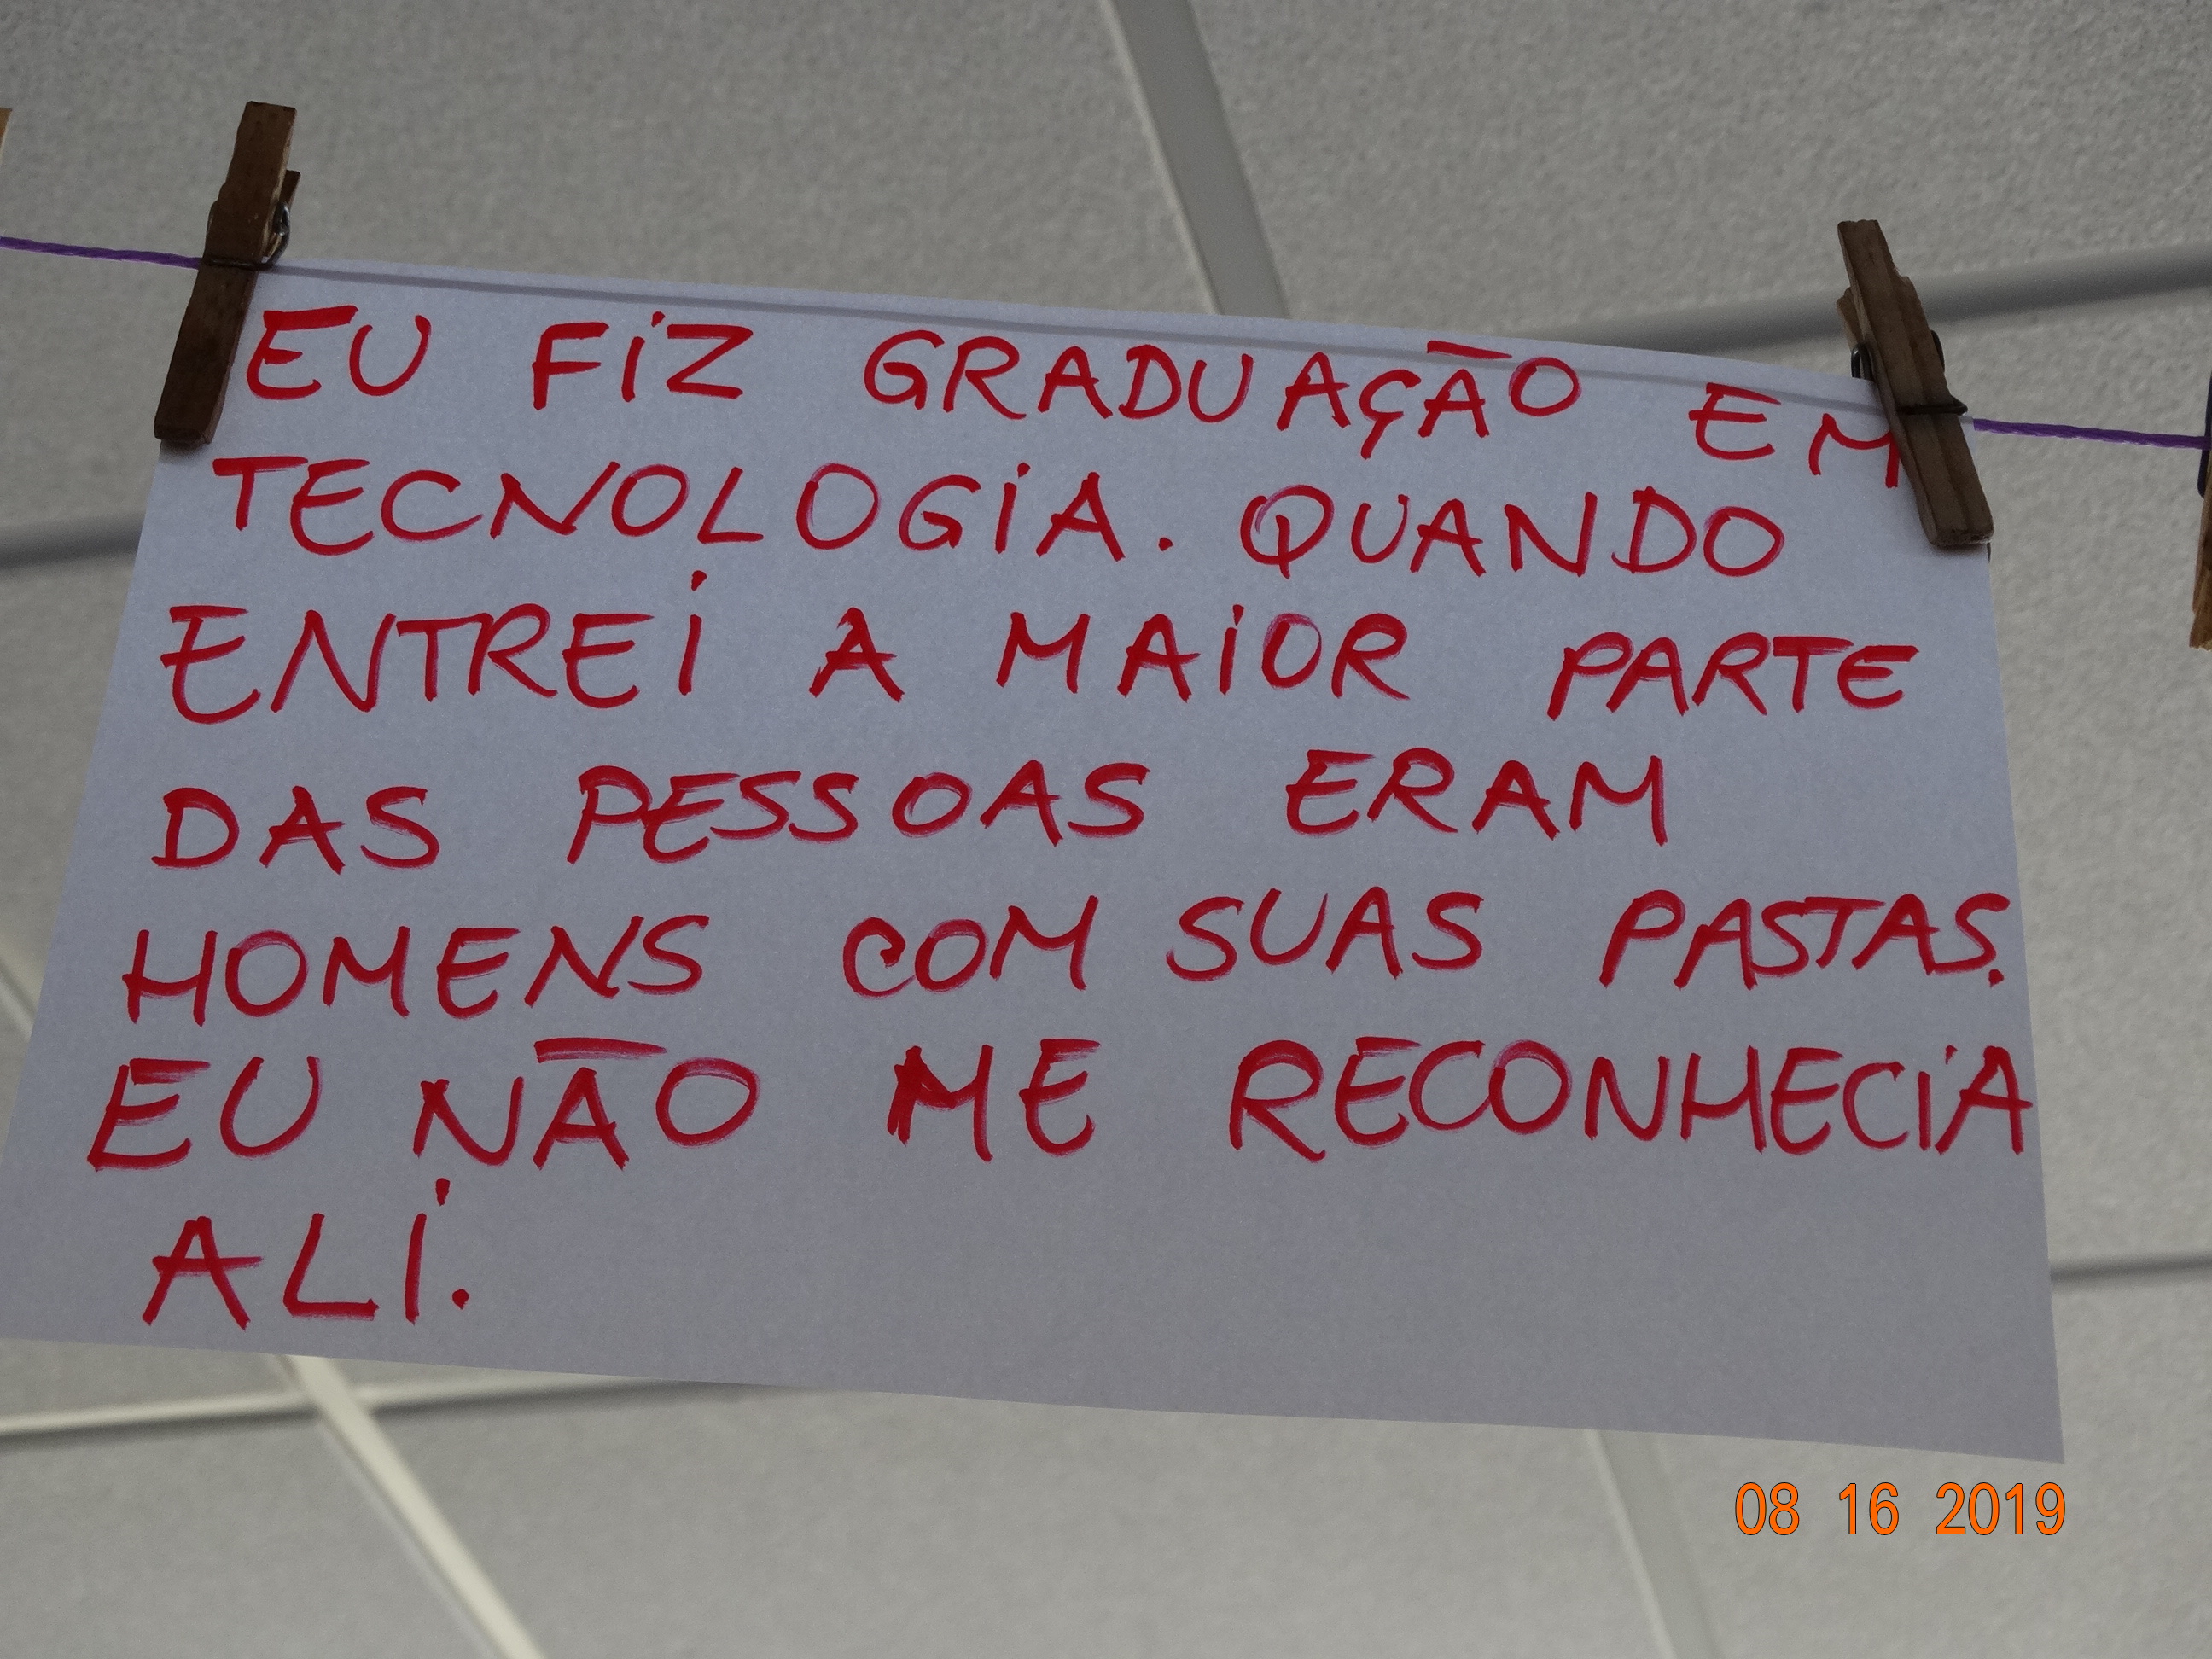 EU FIZ GRADUAÇÃO EM
TECNOLOGIA. QUANDO
ENTREI A MAIOR PARTE
DAS PESSOAS ERAM
HOMENS COM SUAS PASTAS.
EU NÃO ME RECONHECIA
ALI.
08 16 2019